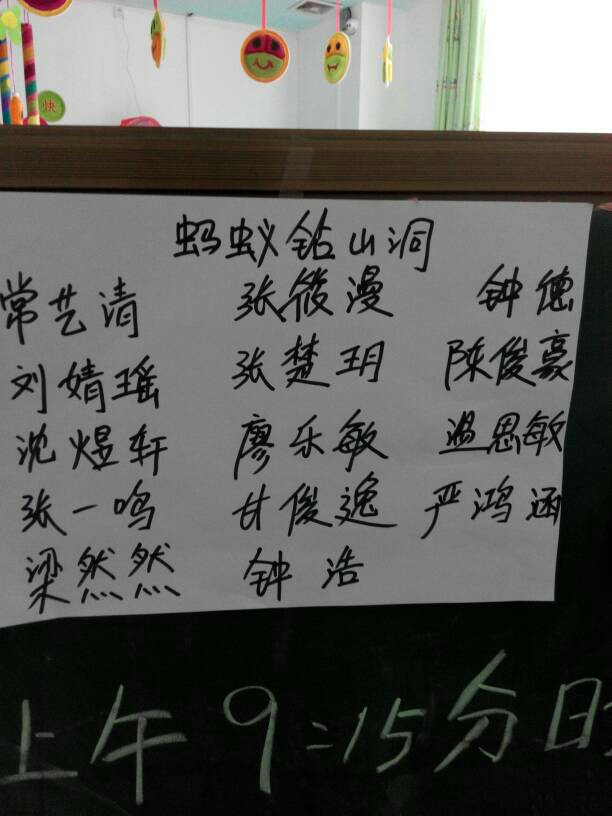 快
蚂蚁钻山洞
常艺清 张筱漫 钟德
刘婧瑶 张楚玥 陈俊豪
沈煜轩 廖乐敏 温思敏
张一鸣 甘俊逸 严鸿涵
梁然然 钟浩
上午9:15分